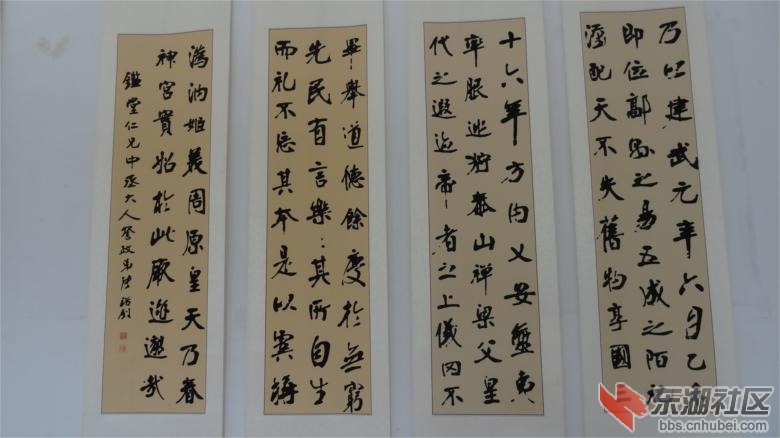 乃以建武元年六月乙
即位鄗縣之易五成之陌祀
漢配天不失舊物享國三
十六年方内乂安蠻夷
率服巡狩泰山禅梁父皇
代之遐迹帝者之上儀罔不
畢舉道德餘慶於無窮
先民有言樂:其所自生
而礼不忘其本是以虞稱
溈汭姬美周原皇天乃眷
神宮實始於此厥迹邈哉
鑑堂仁兄中丞大人詧政弟
东湖社区
bbs.cnhubei.com